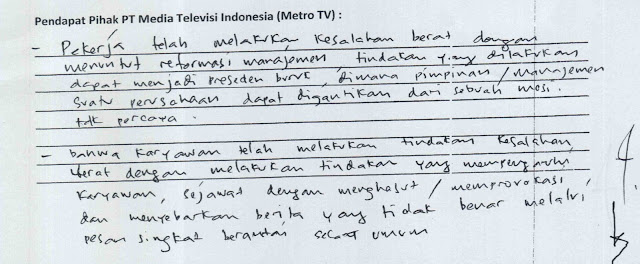 Pendapat Pihak PT Media Televisi Indonesia (Metro TV) :
- Pekerja telah melakukan kesalahan berat dengan
menuntut reformasi manajemen, tindakan yang dilakukan
dapat menjadi preseden buruk, dimana pimpinan / manajemen
suatu perusahaan dapat digantikan dari sebuah mosi
tdk percaya.
- bahwa karyawan telah melakukan tindakan kesalahan
berat dengan melakukan tindakan yang mempengaruhi
karyawan, sejawat dengan menghasut / memprovokasi
dan menyebarkan berita yang tidak benar melalui
pesan singkat berantai secara umum